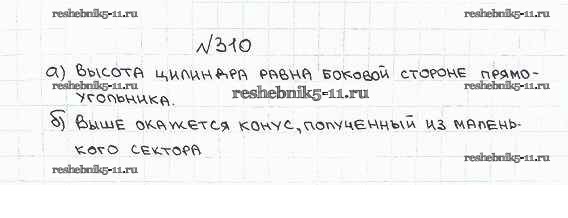 reshebnik5-11.ru reshebnik5-11.ru
№310
а) ВЫСОТА ЦИЛИНДРА РАВНА БОКОВОЙ СТОРОНЕ ПРЯМО-
reshebnik5-11.ru reshebnik5-11.ru reshebnik5-11.ru
УГОЛЬНИКА.
б) ВЫШЕ ОКАЖЕТСЯ КОНУС, ПОЛУЧЕННЫЙ ИЗ МАЛЕНЬ-
КОГО СЕКТОРА
reshebnik5-11.ru reshebnik5-11.ru